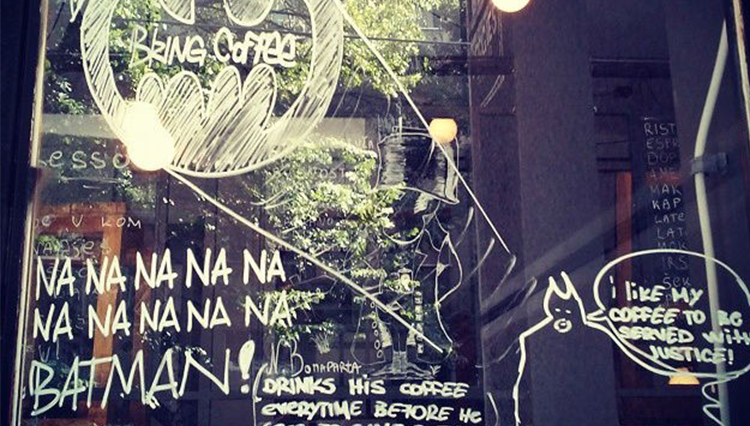 BRING COFFEE
ESSO
U KOM
NA NA NA NA NA
NA NA NA NA NA
BATMAN!
N. BONAPARTA
DRINKS HIS COFFEE
EVERYTIME BEFORE HE
i LiKE MY
COFFEE TO BE
SERVED WITH
JUSTICE!
RIST
ESPR
DOP
MAK
KAP
LATE
LAT
MAK